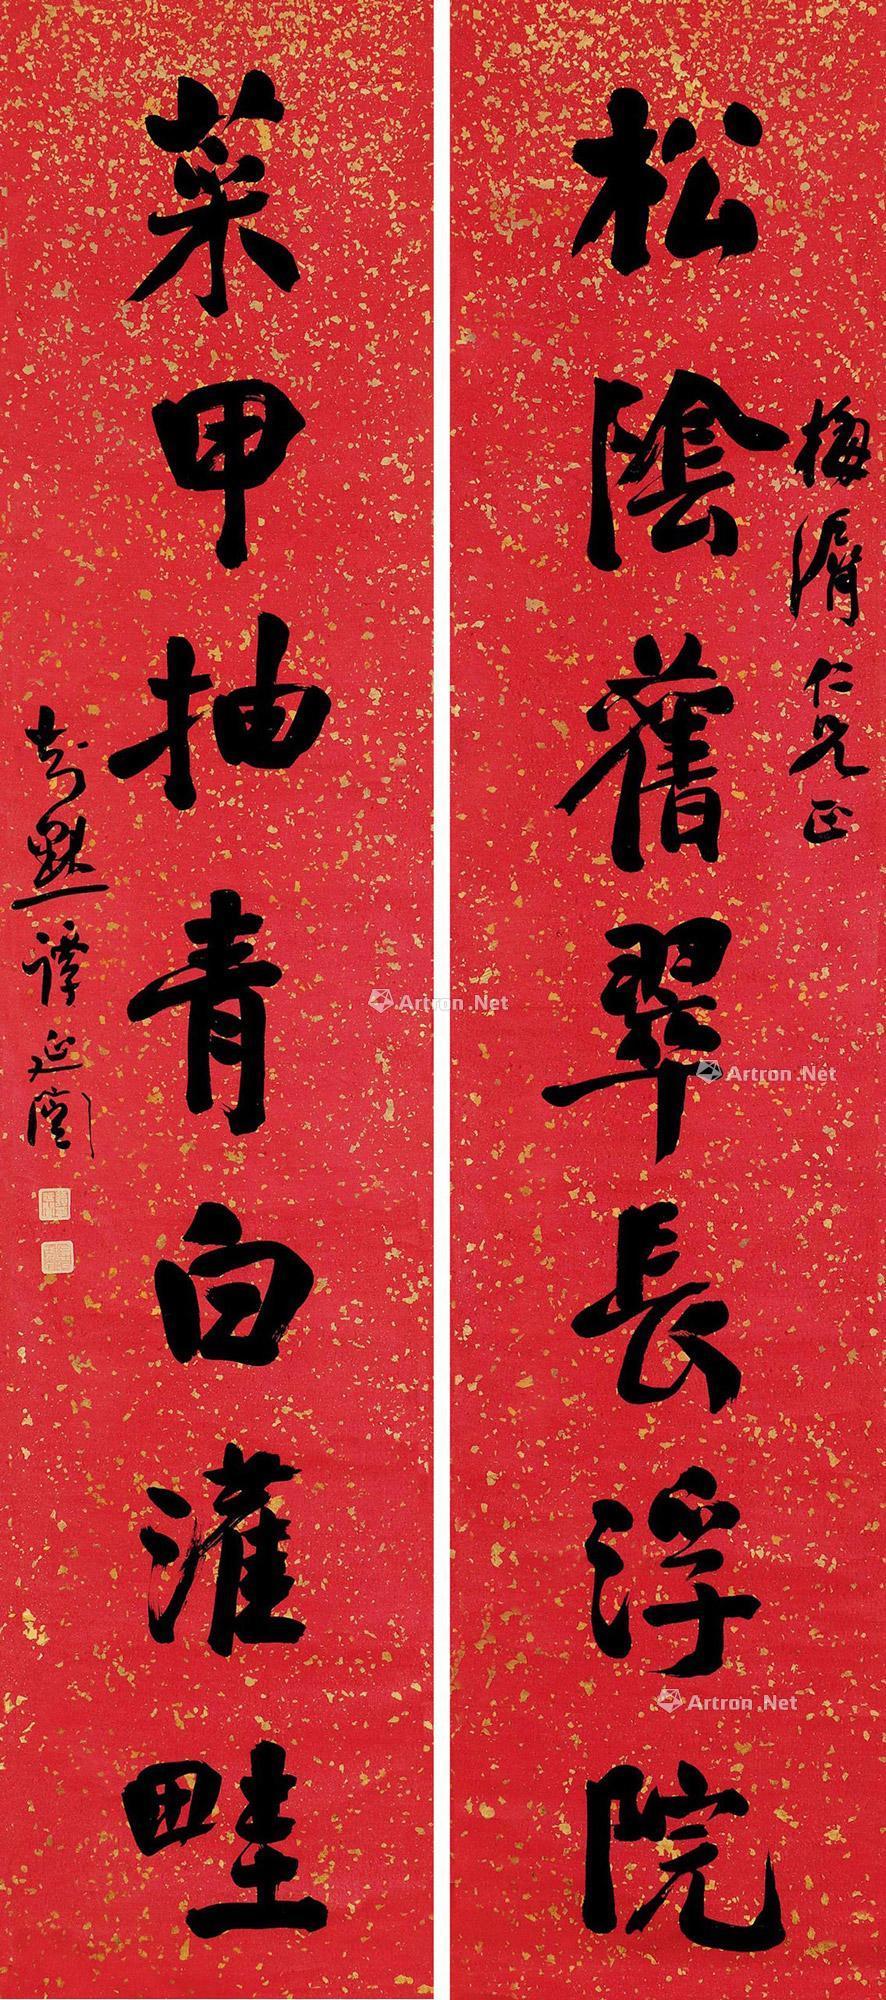 松陰舊翠長浮院
梅湑仁兄正
菜甲抽青白灌畦
瓶齋譚延闓
Artron.Net
Artron.Net
Artron.Net